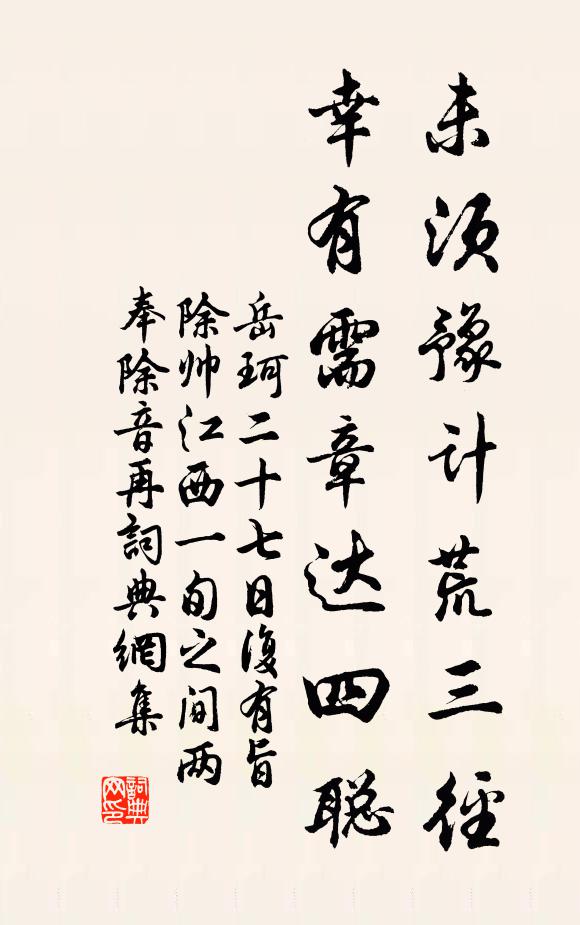 未须豫计荒三径
幸有需章达四聪
岳珂二十七日復有旨
除帅江西一旬之间两
奉除音再詞典網集
詞典网印